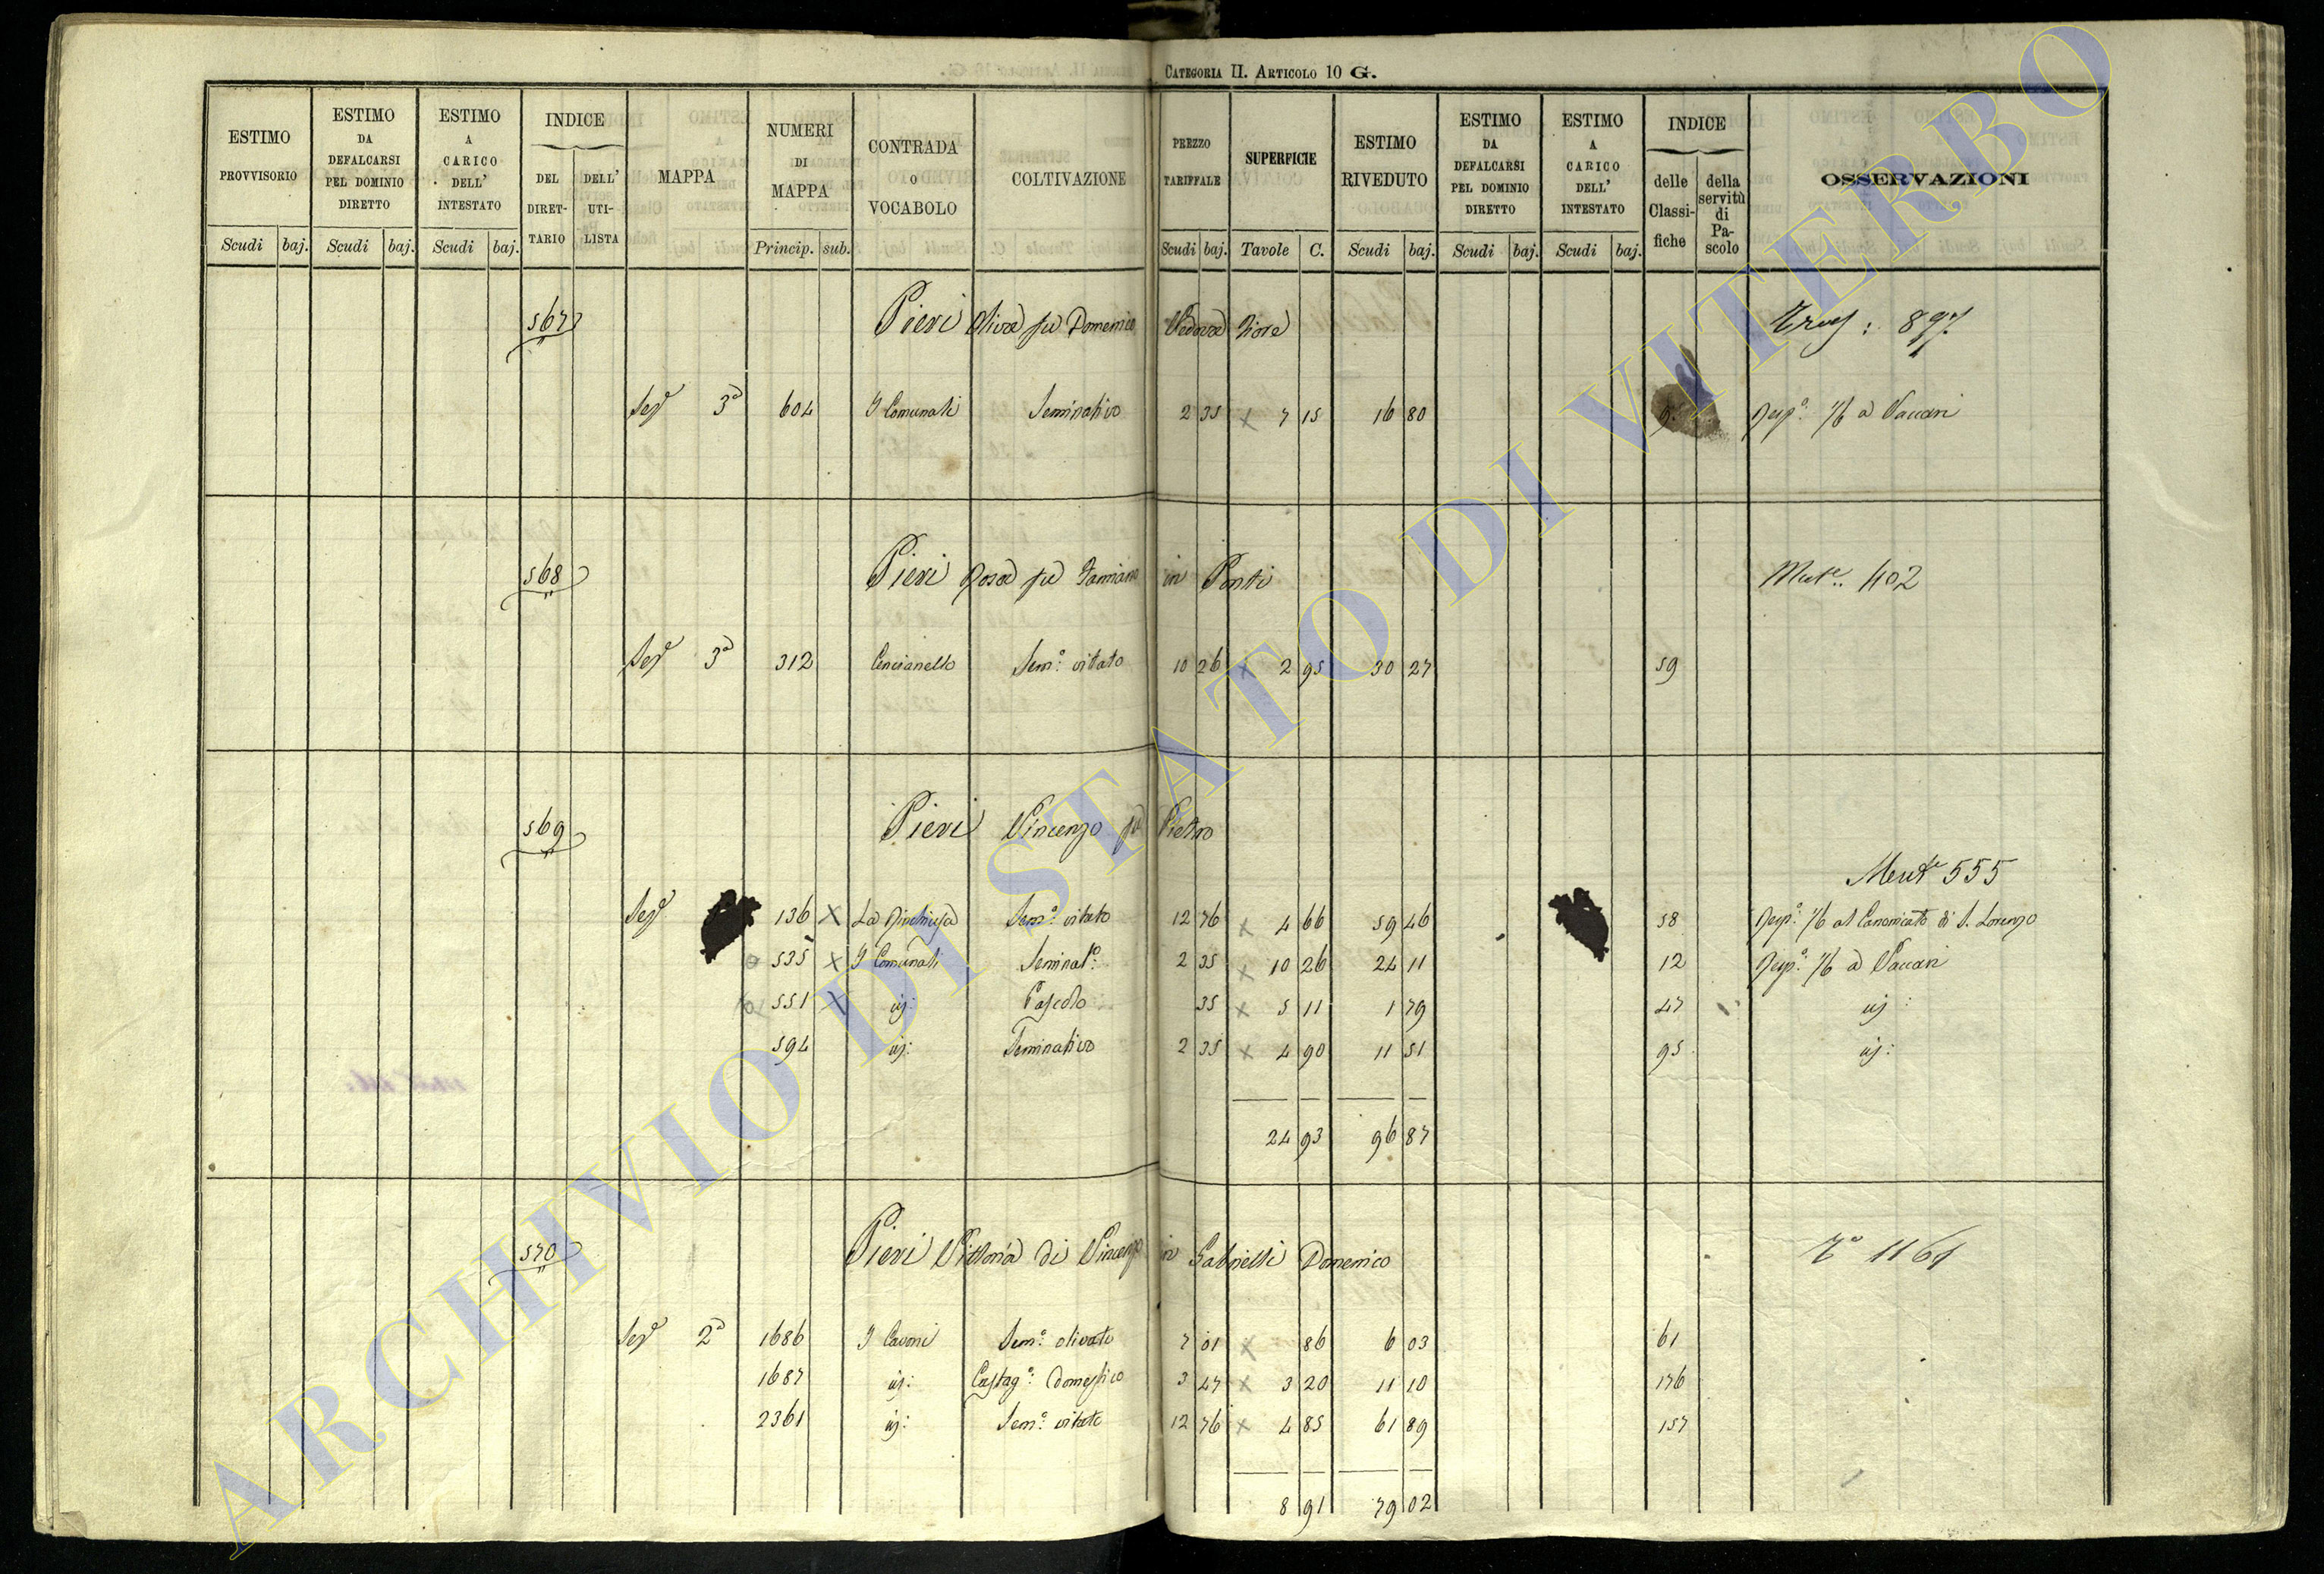 CATEGORIA II. ARTICOLO 10 G.
ESTIMO PROVVISORIO Scudi baj.
ESTIMO DA DEFALCARSI PEL DOMINIO DIRETTO Scudi baj.
ESTIMO A CARICO DELL' INTESTATO Scudi baj.
INDICE DEL DIRETTARIO DELL' UTILISTA
MAPPA
NUMERI DI MAPPA Princip. sub.
CONTRADA O VOCABOLO
COLTIVAZIONE
PREZZO TARIFFALE Scudi baj.
SUPERFICIE Tavole C.
ESTIMO RIVEDUTO Scudi baj.
ESTIMO DA DEFALCARSI PEL DOMINIO DIRETTO Scudi baj.
ESTIMO A CARICO DELL' INTESTATO Scudi baj.
INDICE delle Classifiche della servitù di Pascolo
OSSERVAZIONI
567 Pieri Oliva fu Domenico Vedova Fiore 897
Sezᵉ 3ª 604 I Comunali Seminativo 2 35 x 7 15 16 80 Rispª: 1/6 a Vaccari
568 Pieri Rosa fu Damiano in Ponti Mutᵉ: 402
Sezᵉ 3ª 312 Cencianello Semº: vitato 10 26 x 2 95 30 27 59
569 Pieri Vincenzo fu Pietro
Mutᵉ 555
Sezᵉ 136 x La Rinchiusa Semº: vitato 12 76 x 4 66 59 46 58 Rispª: 1/6 al Canonicato di S. Lorenzo
535 x I Comunali Seminatº: 2 35 x 10 26 24 11 12 Rispª: 1/6 a Vaccari
551 x iij: Pascolo 35 x 5 11 1 79 47 iij:
594 iij: Seminativo 2 35 x 4 90 11 51 95 iij:
24 93 96 87
570 Pieri Vittoria di Vincenzo in Gabrielli Domenico Tª 1161
Sezᵉ 2ª 1686 I Cavoni Semº: olivato 7 01 x 86 6 03 61
1687 iij: Castagº: domestico 3 47 x 3 20 11 10 176
2361 iij: Semº: vitato 12 76 x 4 85 61 89 157
8 91 79 02
ARCHIVIO DI STATO DI VITERBO